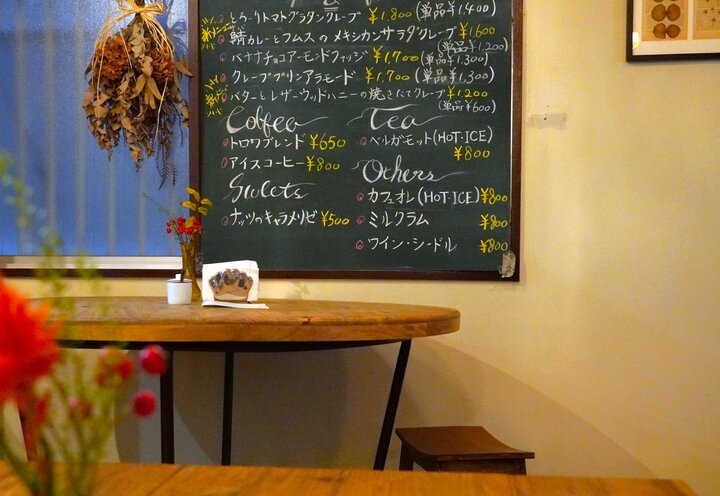 とろーりトマトグラタンクレープ ¥1,800 (単品¥1,400)
鯖カレーとフムスのメキシカンサラダクレープ ¥1,600
(単品¥1,200)
バナナチョコアーモンドファッジ ¥1,700 (単品¥1,300)
クレーププリンアラモード ¥1,700 (単品¥1,300)
バターとレザーウッドハニーの焼きたてクレープ ¥1,200
(単品¥600)
Coffee
トロワブレンド ¥650
アイスコーヒー ¥800
Sweets
ナッツのキャラメリゼ ¥500
Tea
ベルガモット(HOT・ICE)
¥800
Others
カフェオレ(HOT・ICE) ¥800
ミルクラム ¥800
ワイン・シードル ¥800